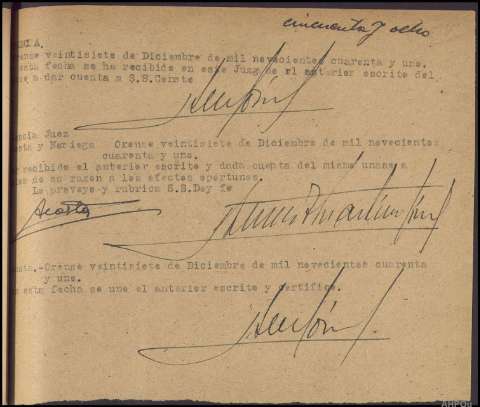 cincuenta y ocho
CIA.
Orense veintisiete de Diciembre de mil novecientos cuarenta y uno.
esta fecha se ha recibido en este Juzg de el anterior escrito del
a dar cuenta a S.S.
encia Juez
sta y Noriega Orense veintisiete de Diciembre de mil novecientos
cuarenta y uno.
r recibido el anterior escrito y dada cuenta del mismo unase a
de su razon a los efectos oportunos.
Lo proveye y rubrica S.S.Doy fe
Acosta
sta.-Orense veintisiete de Diciembre de mil novecientos cuarenta
y uno.
esta fecha se une el anterior escrito y certifico.
AHPOu